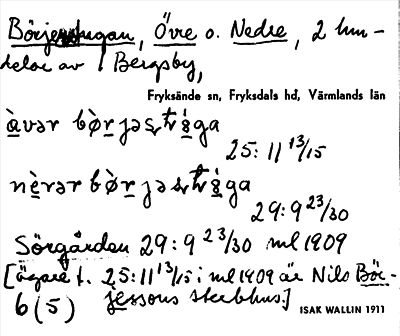 Börjestugan, Övre o. Nedre, 2 hm-
delar av 1 Bergsby,
Fryksände sn, Fryksdals hd, Värmlands län
25:11 13/15
29:9 23/30
Sörgården 29:9 23/30 ml 1909
[ägare t. 25:11 13/15 i ml 1909 är Nils Bör-
6(5) jessons sterbhus.]
ISAK WALLIN 1911